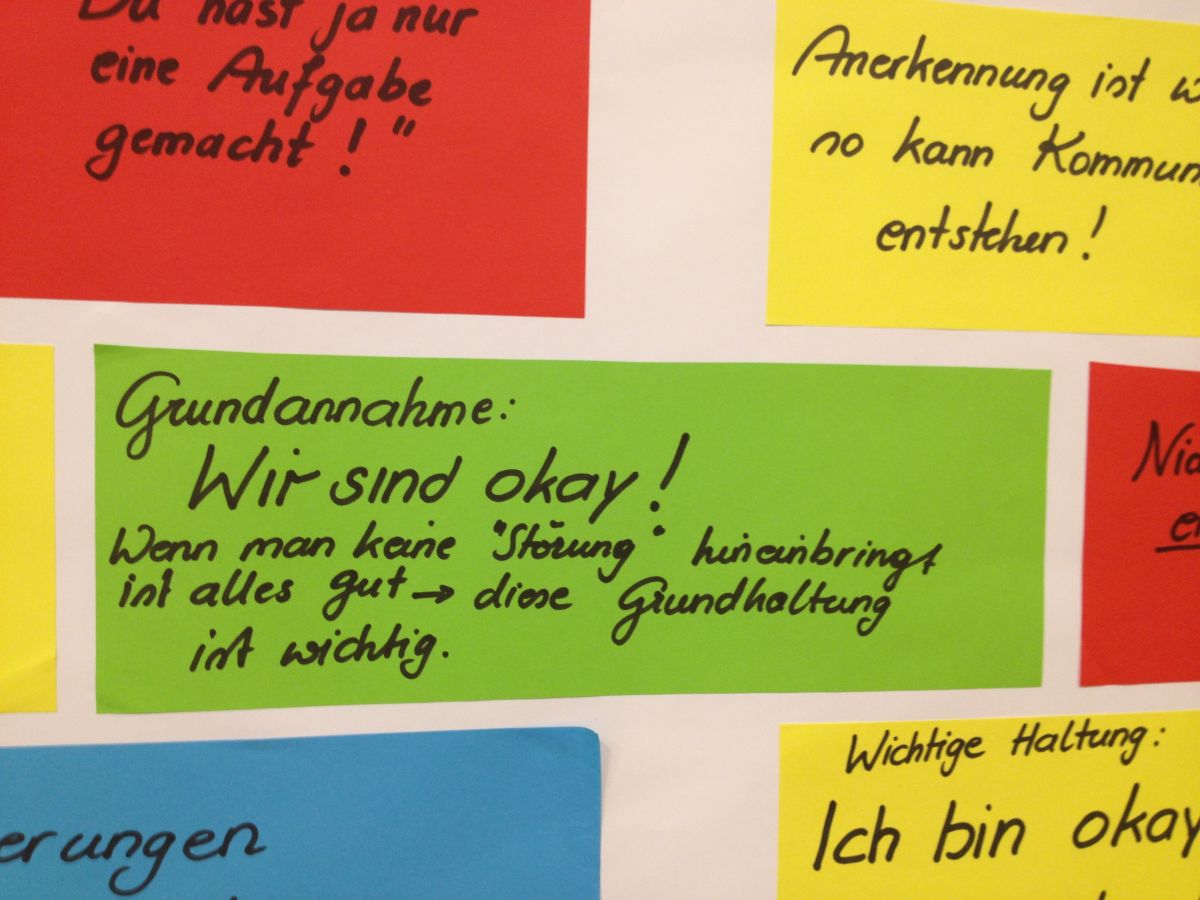 Du hast ja nur
eine Aufgabe
gemacht!"
Anerkennung ist
so kann
entstehen!
Grundannahme:
Wir sind okay!
Wenn man keine "Störung" hineinbringt
ist alles gut → diese Grundhaltung
ist wichtig.
Wichtige Haltung:
Ich bin okay